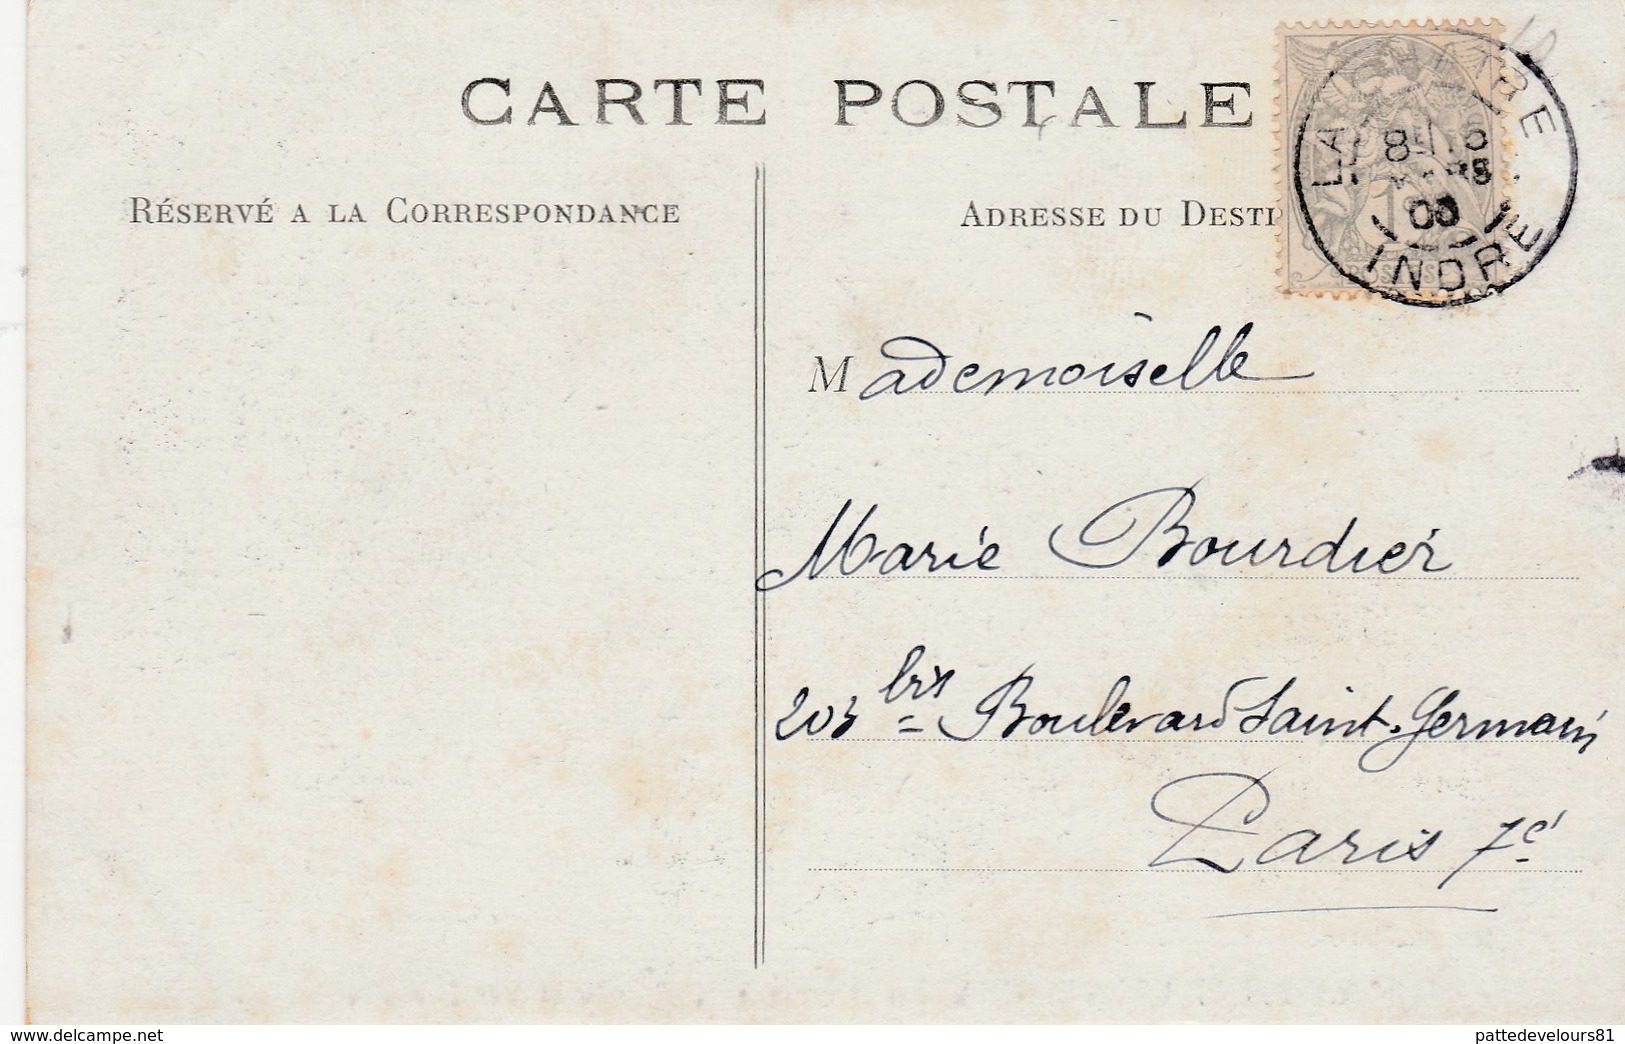 CARTE POSTALE
RÉSERVÉ A LA CORRESPONDANCE
ADRESSE DU DESTI
LA CHATRE
INDRE
Mademoiselle
Marie Bourdier
203 bis Boulevard Saint-Germain
Paris 7e
delcampe.net
pattedevelours81